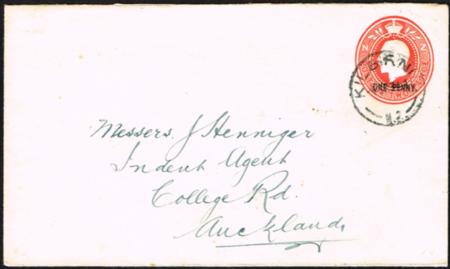 ONE PENNY.
N.Z.
Messers. J Henniger
Indent Agent
College Rd.
Auckland